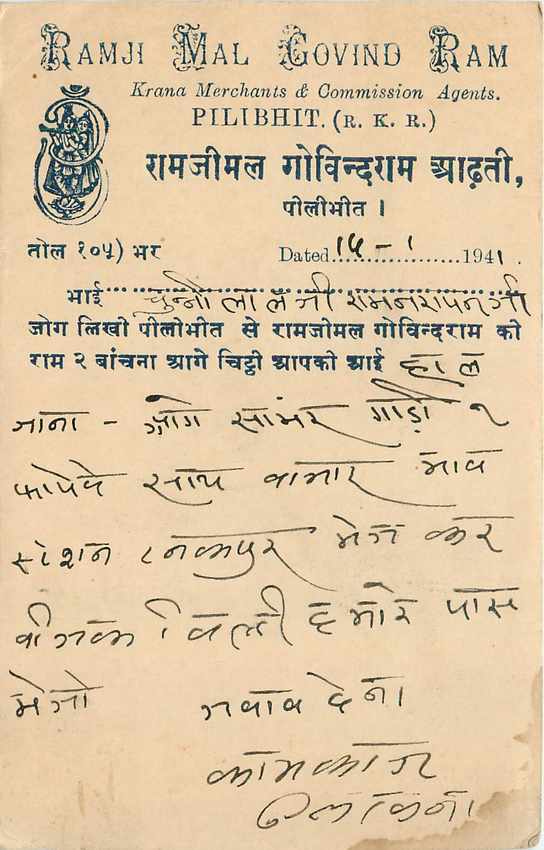 RAMJI MAL GOVIND RAM
Krana Merchants & Commission Agents.
PILIBHIT. (R. K. R.)
रामजीमल गोविन्दराम आढ़ती,
पीलीभीत ।
तोल १०५) भर Dated 15 - 1 1941.
भाई चुन्नी लाल जी रामनरायन जी
जोग लिखी पीलीभीत से रामजीमल गोविन्दराम की
राम २ बांचना आगे चिट्ठी आपकी आई हाल
जाना - आगे सांभर गाड़ी १
साथ बाजार भाव
स्टेशन टनकपुर भेज कर
बीजक बिल्टी हमारे पास
भेजो जवाब देना
कामकाज
लिखना